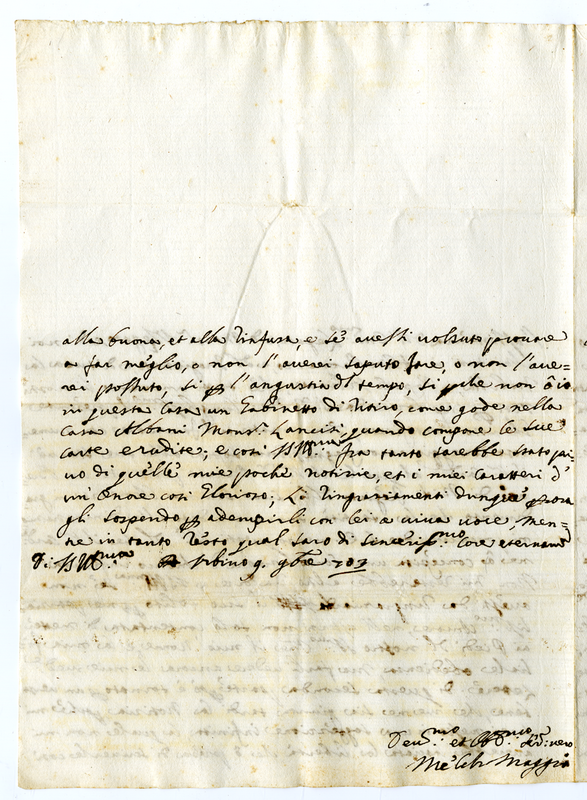 alla buona, et alla rinfusa, e se avessi voluto provare
a far meglio, o non l'averei saputo fare, o non l'ave=
rei possuto, sì p l'angustia del tempo, sì perche non ò io
in questa Casa un Gabinetto di ritiro, come gode nella
Casa Albani Mons.r Lancisi, quando compone le sue
carte erudite; e così fra tanto sarebbe stato pri=
vo di quelle mie poche notizie, et i miei caratteri d'
un' onore così Glorioso; Li ringraziamenti dunque p ora
gli sospendo p adempirli con lei a viva voce, men=
tre in tanto resto qual sarò di sinceriss.mo Core eternam.e
Di Urbino 9. gbre 703
Dev.mo et Obb.mo vero
Maggio